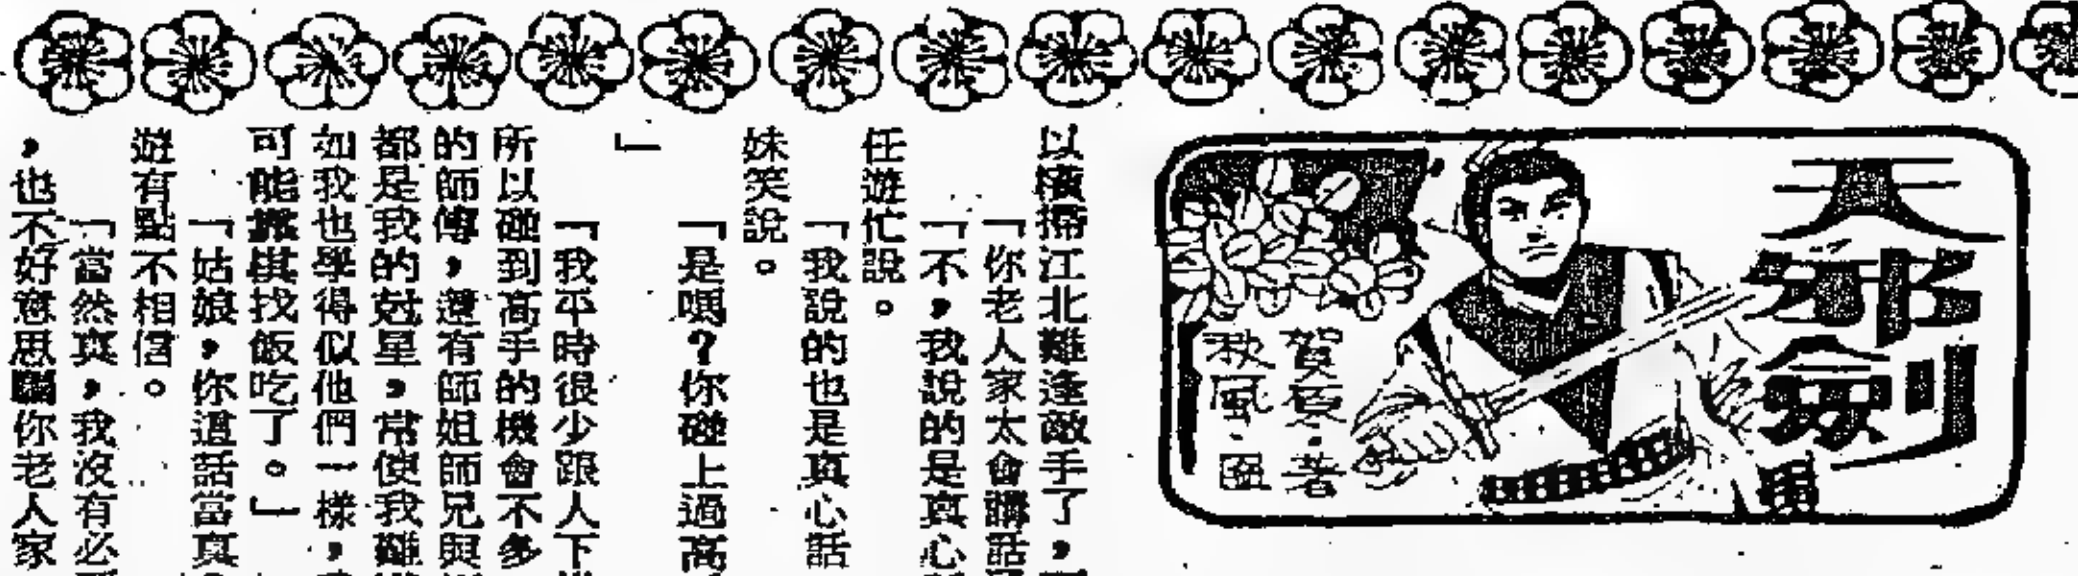 天邪劍
賀原·著
秋風·圖
以橫掃江北難逢敵手了，
「你老人家太會講話
「不，我說的是真心
任遊忙說。
「我說的也是真心話
妹笑說。
「是嗎？你碰上過高
」
「我平時很少跟人下
所以碰到高手的機會不多
的師傅，還有師姐師兄與
都是我的尅星，常使我難
如我也學得似他們一樣，
可能擺棋找飯吃了。」
「姑娘，你這話當真
遊有點不相信。
「當然真，我沒有必
，也不好意思騙你老人家